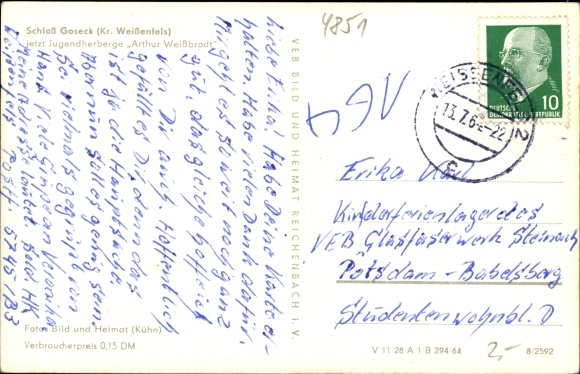 Schloß Goseck (Kr. Weißenfels)
jetzt Jugendherberge „Arthur Weißbrodt"
4851
Liebe Erika! Habe Deine Karte er-
halten. Habe vielen Dank dafür.
Mir geht es zur Zeit noch ganz
gut, das gleiche hoffe ich
von Dir auch. Hoffentlich
gefällt es Dir, denn das
ist ja die Hauptsache.
Warum soll es genug sein.
Sei nun herzlich gegrüßt von
Veronika
Meine Adresse lautet bald
Weißenfels Postf 5745/B3
Foto: Bild und Heimat (Kühn)
Verbraucherpreis 0,15 DM
VEB BILD UND HEIMAT REICHENBACH I. V.
WEISSENFELS 2
13.7.64-22
c
DEUTSCHE
DEMOKRATISCHE REPUBLIK
10
Erika
Kinderferienlager des
VEB Glasfaserwerk Steinach
Potsdam-Babelsberg
Studentenwohnbl. D
V 11 28 A 1 B 294/64
8/2592
2,-